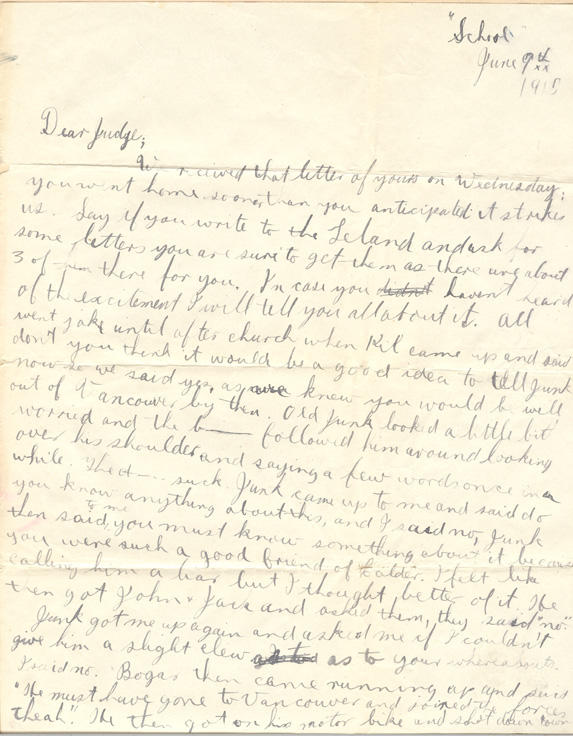 "School"
June 9th
1915
Dear Judge;
We recieved that letter of yours on Wednesday;
you went home sooner than you anticipated it strikes
us. Say if you write to the Leland and ask for
some letters you are sure to get them as there are about
3 of them there for you. In case you haven't heard
of the excitement I will tell you all about it. All
went jake until after church when Kil came up and said
don't you think it would be a good idea to tell Junk
now so we said yes, as we knew you would be well
out of Vancouver by then. Old Junk looked a little bit
worried and the b—— followed him around looking
over his shoulder and saying a few words once in a
while. The d—— suck. Junk came up to me and said do
you know anything about this, and I said no, Junk
then said to me, you must know something about it because
you were such a good friend of Calder. I felt like
calling him a liar but I thought better of it. He
then got John & Jack and asked them, they said "no".
Junk got me up again and asked me if I couldn't
give him a slight clew as to your whereabouts.
I said no. Bogas then came running up and said
"He must have gone to Vancouver and joined the forces
theah". He then got on his motor bike and shot down town